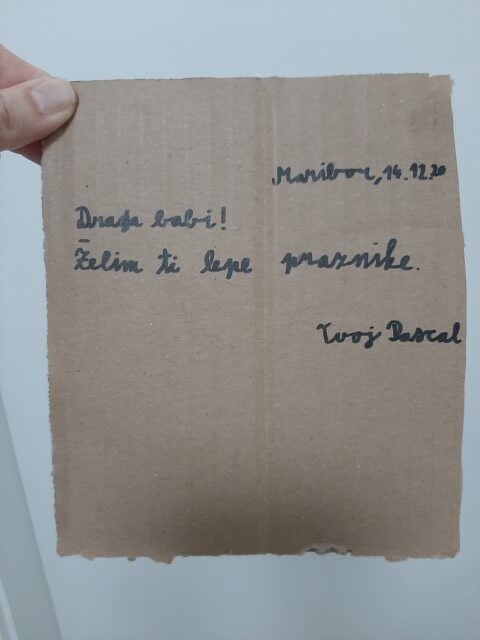 Maribor, 14.12.20
Draga babi!
Želim ti lepe praznike.
Tvoj Pascal